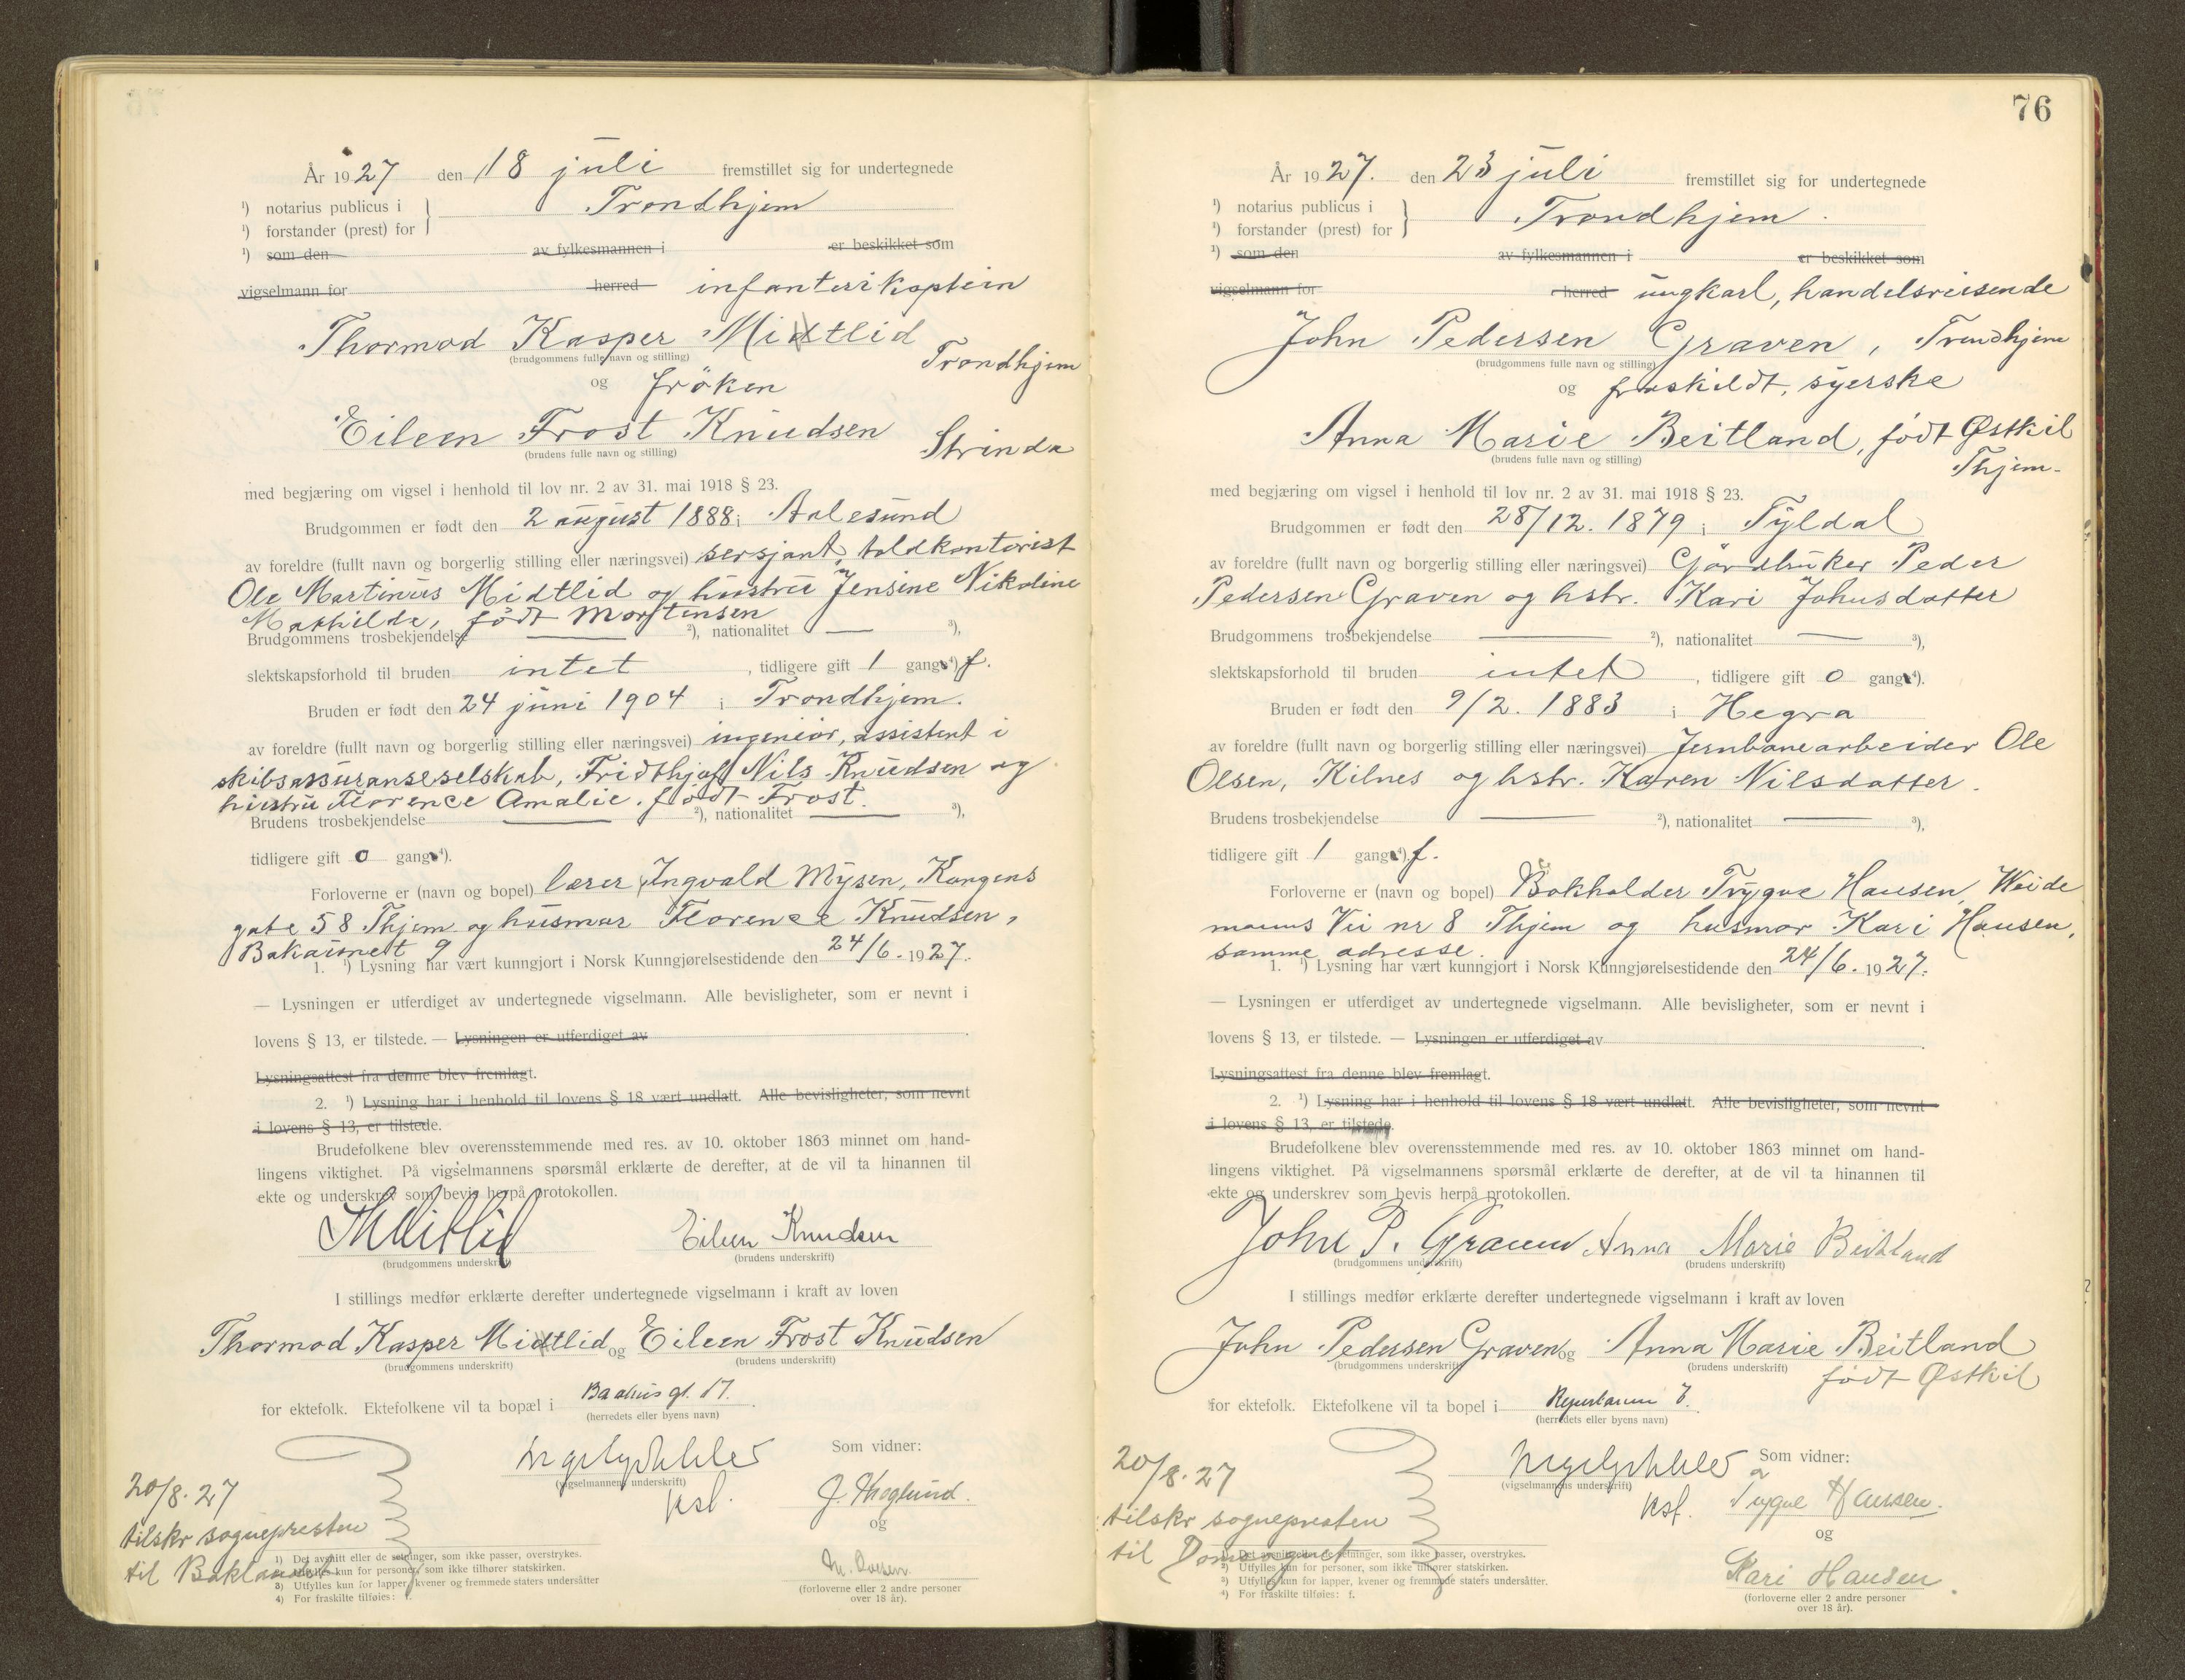 År 1927 den 18 juli fremstillet sig for undertegnede
¹) notarius publicus i
¹) forstander (prest) for
Trondhjem
¹) som den av fylkesmannen i er beskikket som
vigselmann for herred infanterikaptein
Thormod Kasper Midtlid
(brudgommens fulle navn og stilling)
Trondhjem
og fröken
Eileen Frost Knudsen
(brudens fulle navn og stilling)
Strinda
med begjæring om vigsel i henhold til lov nr. 2 av 31. mai 1918 § 23.
Brudgommen er født den 2 august 1888 i Aalesund
av foreldre (fullt navn og borgerlig stilling eller næringsvei) sersjant, toldkontorist
Ole Martinus Midtlid og hustru Jensine Nikoline
Mathilde, født Mortensen
Brudgommens trosbekjendelse ²), nationalitet ³),
slektskapsforhold til bruden intet, tidligere gift 1 gang ⁴) f.
Bruden er født den 24 juni 1904 i Trondhjem.
av foreldre (fullt navn og borgerlig stilling eller næringsvei) ingeniör, assistent i
skibsassuranseselskab, Fridthjof Nils Knudsen og
hustru Florence Amalie, födt Frost.
Brudens trosbekjendelse ²), nationalitet ³),
tidligere gift 0 gang ⁴).
Forloverne er (navn og bopel) lærer Ingvald Mysen, Kongens
gate 58 Thjem og husmor Florence Knudsen,
Bakaunet 9
1. ¹) Lysning har vært kunngjort i Norsk Kunngjørelsestidende den 24/6. 1927.
— Lysningen er utferdiget av undertegnede vigselmann. Alle bevisligheter, som er nevnt i
lovens § 13, er tilstede. — Lysningen er utferdiget av
Lysningsattest fra denne blev fremlagt.
2. ¹) Lysning har i henhold til lovens § 18 vært undlatt. Alle bevisligheter, som nevnt
i lovens § 13, er tilstede.
Brudefolkene blev overensstemmende med res. av 10. oktober 1863 minnet om hand-
lingens viktighet. På vigselmannens spørsmål erklærte de derefter, at de vil ta hinannen til
ekte og underskrev som bevis herpå protokollen.
ThMidtlid Eileen Knudsen
(brudgommens underskrift) (brudens underskrift)
I stillings medfør erklærte derefter undertegnede vigselmann i kraft av loven
Thormod Kasper Midtlid og Eileen Frost Knudsen
(brudgommens underskrift) (brudens underskrift)
for ektefolk. Ektefolkene vil ta bopæl i Baahus gt. 17.
(herredets eller byens navn)
Som vidner:
(vigselmannens underskrift)
kst.
J. Hoglund.
og
(forloverne eller 2 andre personer
over 18 år).
20/8. 27
tilskr sognepresten
til Baklandet
1) Det avsnitt eller de setninger, som ikke passer, overstrykes.
2) Utfylles kun for personer, som ikke tilhører statskirken.
3) Utfylles kun for lapper, kvener og fremmede staters undersåtter
4) For fraskilte tilføies: f.
76
År 1927. den 23 juli fremstillet sig for undertegnede
¹) notarius publicus i
¹) forstander (prest) for
Trondhjem.
¹) som den av fylkesmannen i er beskikket som
vigselmann for herred ungkarl, handelsreisende
John Pedersen Graven, Trondhjem
(brudgommens fulle navn og stilling)
og fraskildt, syerske
Anna Marie Beitland, født Østkil
(brudens fulle navn og stilling)
Thjem.
med begjæring om vigsel i henhold til lov nr. 2 av 31. mai 1918 § 23.
Brudgommen er født den 28/12. 1879 i Tyldal
av foreldre (fullt navn og borgerlig stilling eller næringsvei) Gårdbruker Peder
Pedersen Graven og hstr. Kari Johnsdatter
Brudgommens trosbekjendelse ²), nationalitet ³),
slektskapsforhold til bruden intet, tidligere gift 0 gang ⁴).
Bruden er født den 9/2. 1883 i Hegra
av foreldre (fullt navn og borgerlig stilling eller næringsvei) Jernbanearbeider Ole
Olsen, Kilnes og hstr. Karen Nilsdatter.
Brudens trosbekjendelse ²), nationalitet ³),
tidligere gift 1 gang ⁴) f.
Forloverne er (navn og bopel) Bokholder Trygve Hansen, Weide
manns Vei nr 8 Thjem og husmor Kari Hansen,
samme adresse.
1. ¹) Lysning har vært kunngjort i Norsk Kunngjørelsestidende den 24/6. 1927.
— Lysningen er utferdiget av undertegnede vigselmann. Alle bevisligheter, som er nevnt i
lovens § 13, er tilstede. — Lysningen er utferdiget av
Lysningsattest fra denne blev fremlagt.
2. ¹) Lysning har i henhold til lovens § 18 vært undlatt. Alle bevisligheter, som nevnt
i lovens § 13, er tilstede.
Brudefolkene blev overensstemmende med res. av 10. oktober 1863 minnet om hand-
lingens viktighet. På vigselmannens spørsmål erklærte de derefter, at de vil ta hinannen til
ekte og underskrev som bevis herpå protokollen.
John P. Graven Anna Marie Beitland
(brudgommens underskrift) (brudens underskrift)
I stillings medfør erklærte derefter undertegnede vigselmann i kraft av loven
John Pedersen Graven og Anna Marie Beitland
(brudgommens underskrift) (brudens underskrift)
født Østkil
for ektefolk. Ektefolkene vil ta bopel i
(herredets eller byens navn)
Som vidner:
(vigselmannens underskrift)
kst.
Trygve Hansen.
og
Kari Hansen.
(forloverne eller 2 andre personer
over 18 år).
20/8. 27
tilskr sognepresten
til Domsognet
¹) Det avsnitt eller de setninger, som ikke passer, overstrykes.
²) Utfylles kun for personer, som ikke tilhører statskirken.
³) Utfylles kun for lapper, kvener og fremmede staters undersåtter.
⁴) For fraskilte tilføies: f.